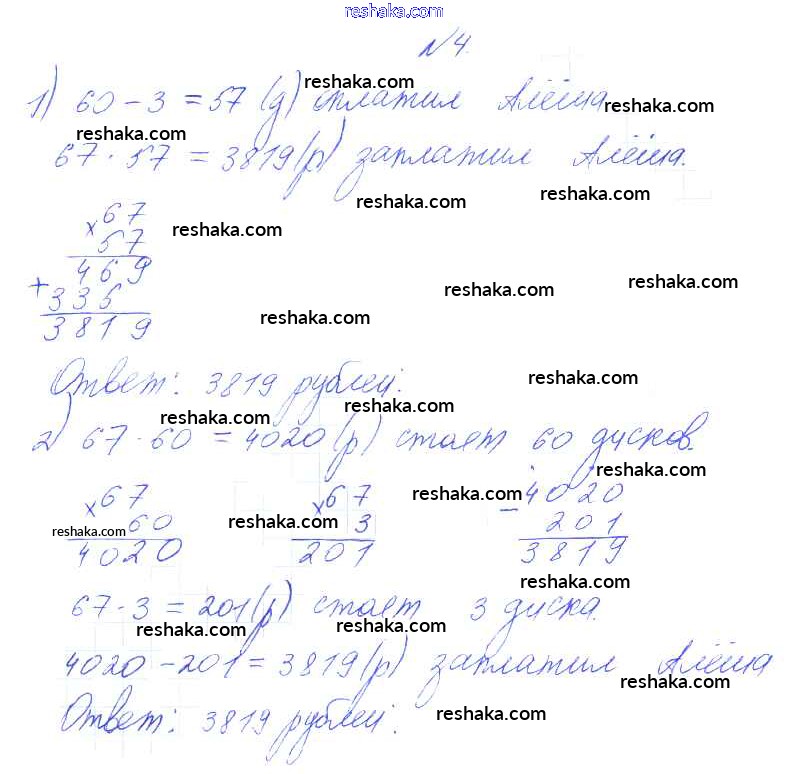 reshaka.com
N 4.
1) 60 - 3 = 57 (д) оплатил Алёша
reshaka.com reshaka.com
reshaka.com
67 · 57 = 3819 (р) заплатил Алёша.
reshaka.com reshaka.com
× 67 reshaka.com
57
469
+ 335 reshaka.com reshaka.com
3819 reshaka.com
Ответ: 3819 рублей.
reshaka.com
reshaka.com reshaka.com
2) 67 · 60 = 4020 (р) стоят 60 дисков.
reshaka.com
× 67 × 67 - 4020
reshaka.com
60 3 201
reshaka.com reshaka.com reshaka.com
4020 201 3819
reshaka.com
67 · 3 = 201 (р) стоят 3 диска.
reshaka.com reshaka.com
4020 - 201 = 3819 (р) заплатил Алёша
reshaka.com
Ответ: 3819 рублей.
reshaka.com